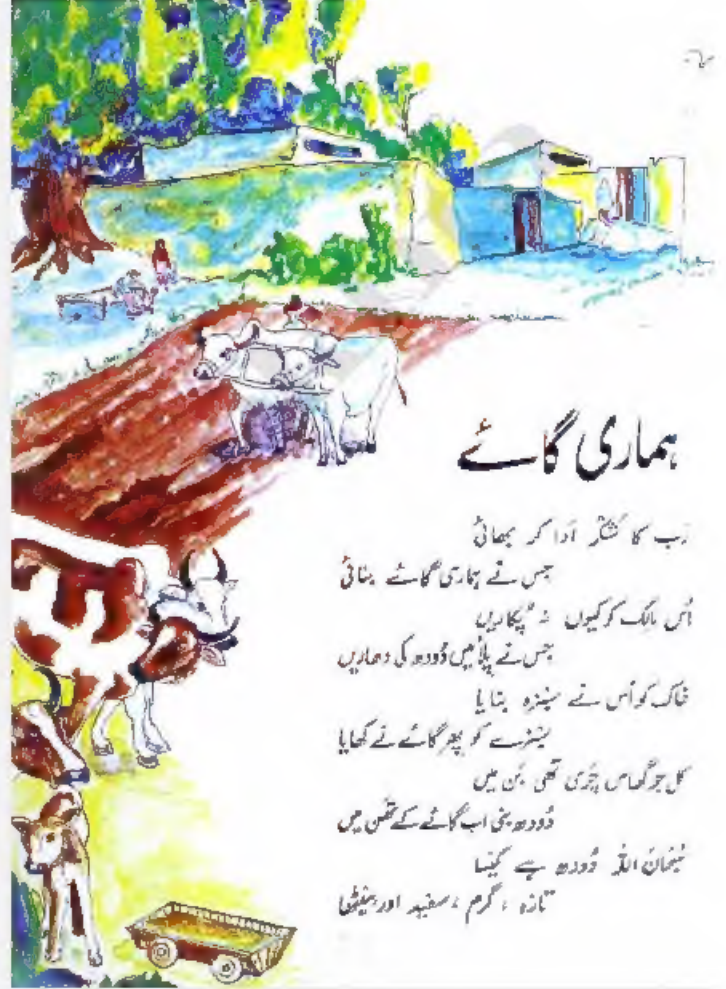 ہماری گائے
رَب کا شُکْر اَدا کر بھائی
جس نے ہماری گائے بنائی
اُس مالِک کو کیوں نہ پُکاریں
جس نے پِلائیں دُودھ کی دھاریں
خاک کو اُس نے سَبْزہ بنایا
سَبْزے کو پھر گائے نے کھایا
کل جو گھاس چَری تھی بَن میں
دُودھ بنی اب گائے کے تھَن میں
سُبْحَانَ اللہ دُودھ ہے کَیسا
تازہ ، گرم ، سفید اور مِیٹھا